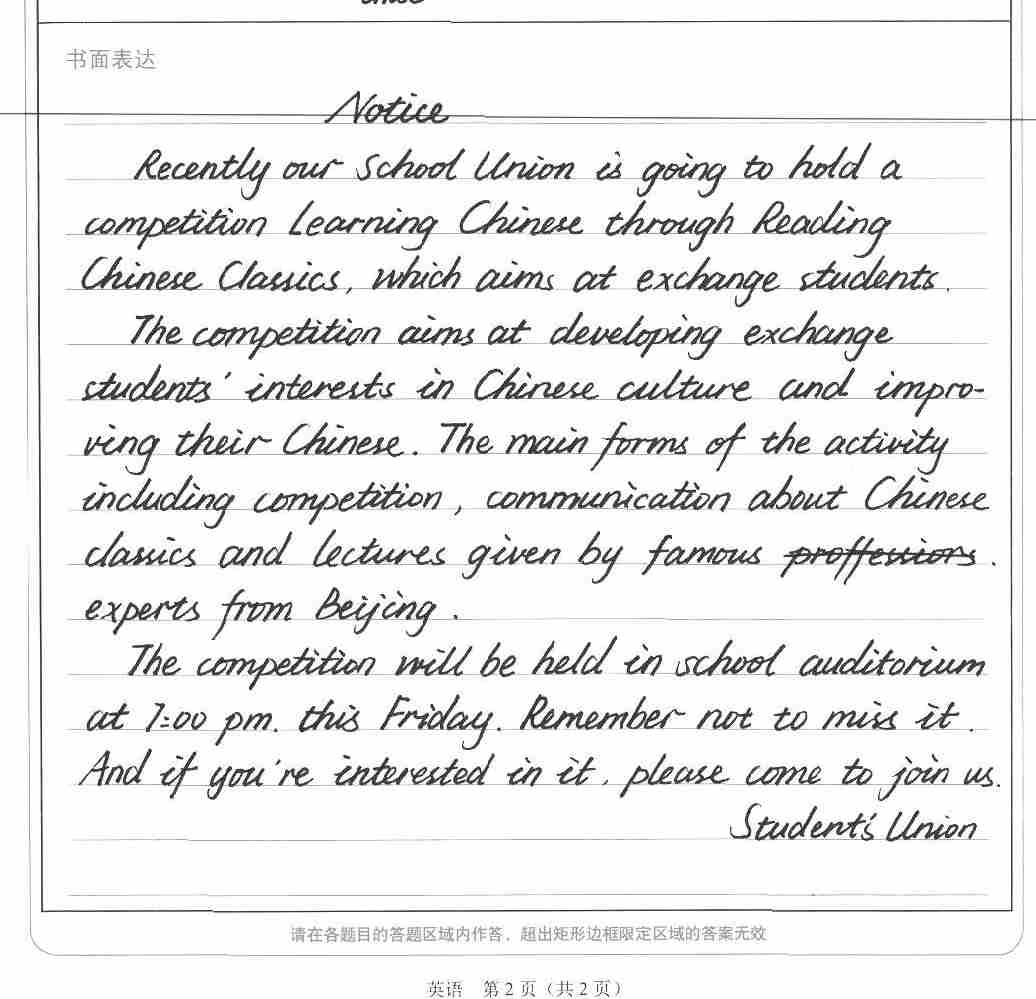 书面表达
Notice
Recently our School Union is going to hold a
competition Learning Chinese through Reading
Chinese Classics, which aims at exchange students.
The competition aims at developing exchange
students' interests in Chinese culture and impro-
ving their Chinese. The main forms of the activity
including competition, communication about Chinese
classics and lectures given by famous proffessiors.
experts from Beijing.
The competition will be held in school auditorium
at 7:00 pm. this Friday. Remember not to miss it.
And if you're interested in it, please come to join us.
Student's Union
请在各题目的答题区域内作答，超出矩形边框限定区域的答案无效
英语 第2页（共2页）